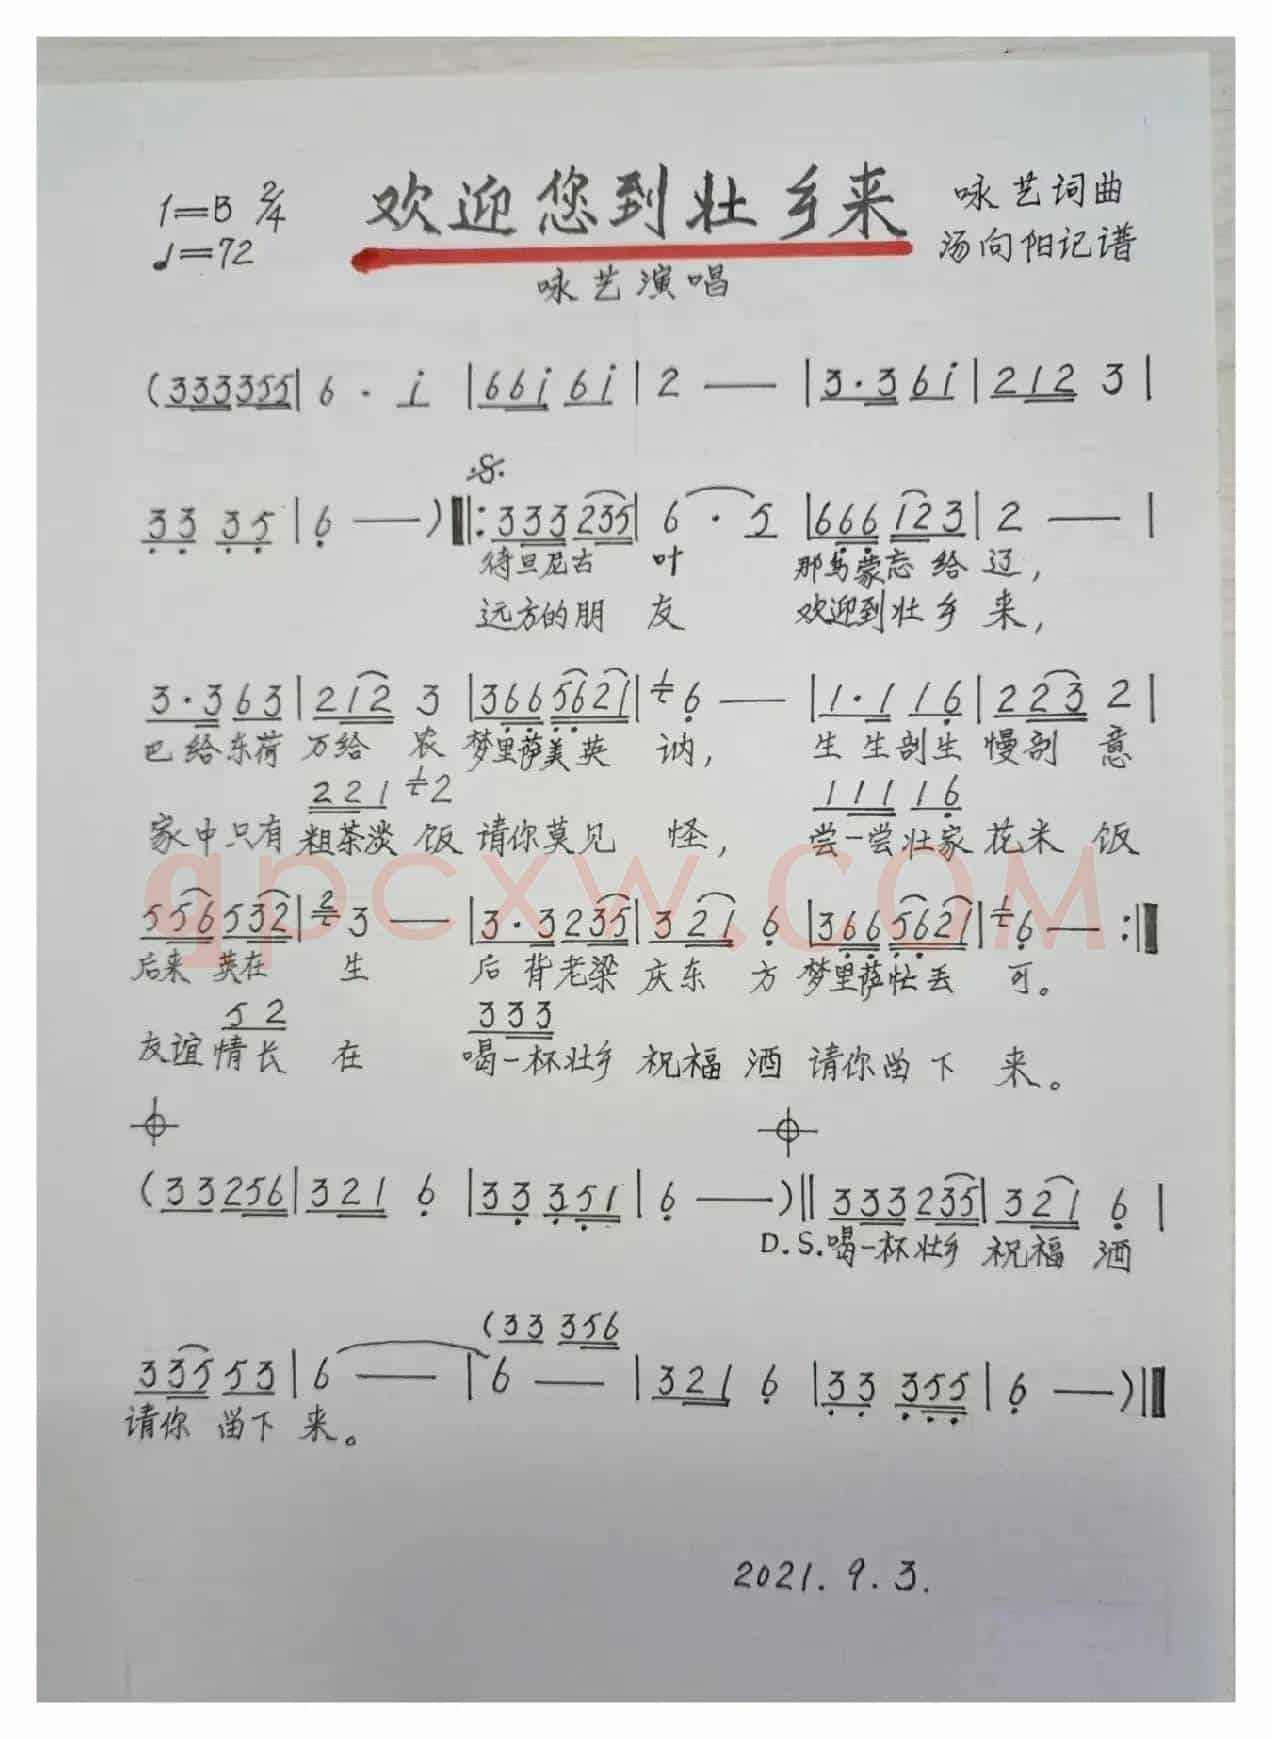 1=B 2/4 欢迎您到壮乡来 咏艺词曲
♩=72 汤向阳记谱
咏艺演唱
(333355|6·i|66i 6i|2—|3·36i|212 3|
33 35|6—)‖:333235|6·5|666123|2—|
待旦尼古 叶 那鸟蒙忘给迈，
远方的朋 友 欢迎到壮乡 来，
3·363|212 3|3665621|6—|1·1 16|223 2|
巴给东荷 万给 农 梦里萨美英 讷， 生生剖生 慢剖 意
221 2 111 16
家中只有粗茶淡 饭 请你莫见 怪， 尝一尝壮家花米 饭
556532|3—|3·3235|321 6|3665621|6—:‖
后来 英在 生 后背老梁 庆东 方 梦里萨忙丢 可。
52 333
友谊情长 在 喝一杯壮乡 祝福 酒 请你留下 来。
(33256|321 6|33 351|6—)‖333235|321 6|
D.S.喝一杯壮乡 祝福 酒
(33 356
335 53|6—|6—|321 6|33 355|6—)‖
请你 留下 来。
2021.9.3.
qpcxw.com